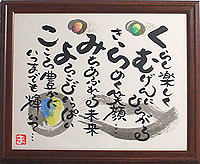 くらし楽しく
むげんにひろがる
きらめく笑顔…
みちあふれる未来
よろこびいっぱい
こころ豊かに
いつまでも輝いて…